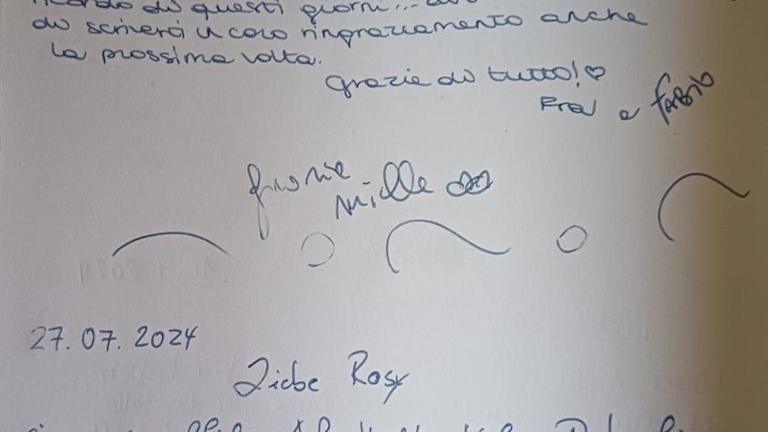 ricordo di questi giorni...
di scriverci un caro ringraziamento anche
la prossima volta.
Grazie di tutto! ♡
Fra e FABIO
grazie
mille
27.07.2024
Liebe Rosy